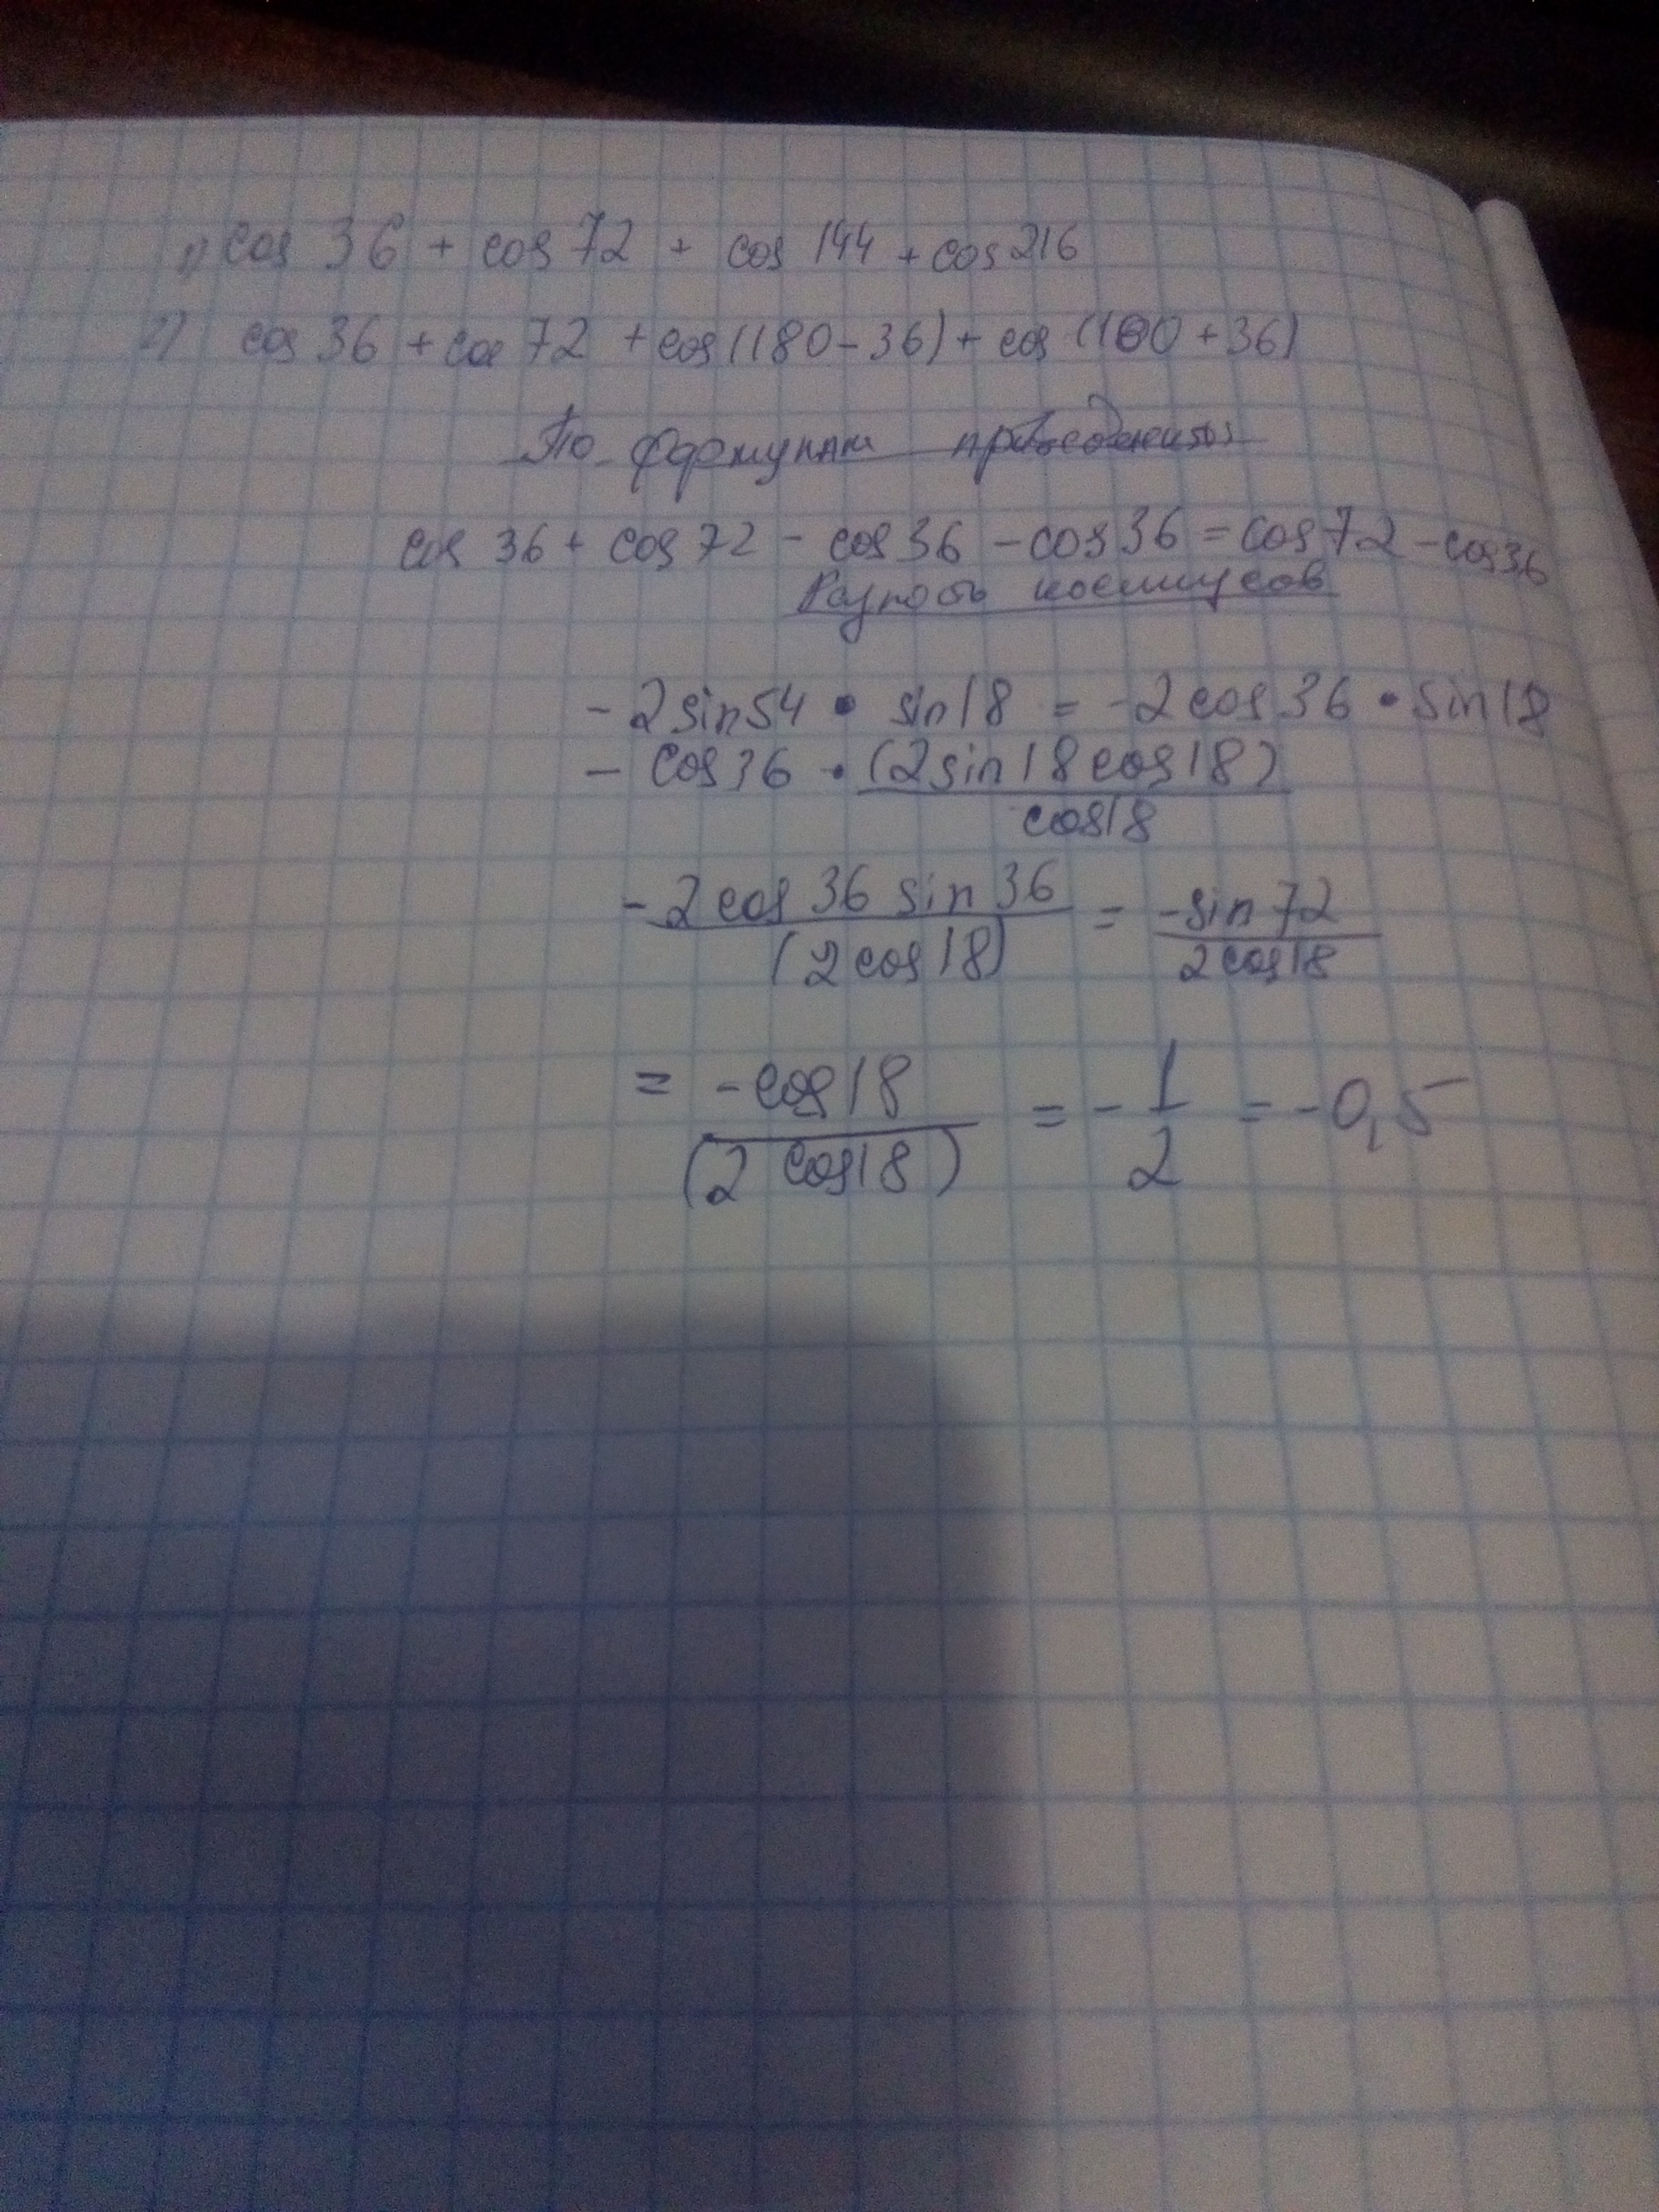 1) cos 36 + cos 72 + cos 144 + cos 216
2) cos 36 + cos 72 + cos(180-36) + cos (180 + 36)
По формулам приведения
cos 36 + cos 72 - cos 36 - cos 36 = cos 72 - cos 36
Разность косинусов
- 2 sin 54 • sin 18 = -2 cos 36 • sin 18
- cos 36 • (2 sin 18 cos 18)
cos 18
- 2 cos 36 sin 36 = -sin 72
(2 cos 18) 2 cos 18
= -cos 18 = - 1 = -0,5
(2 cos 18) 2